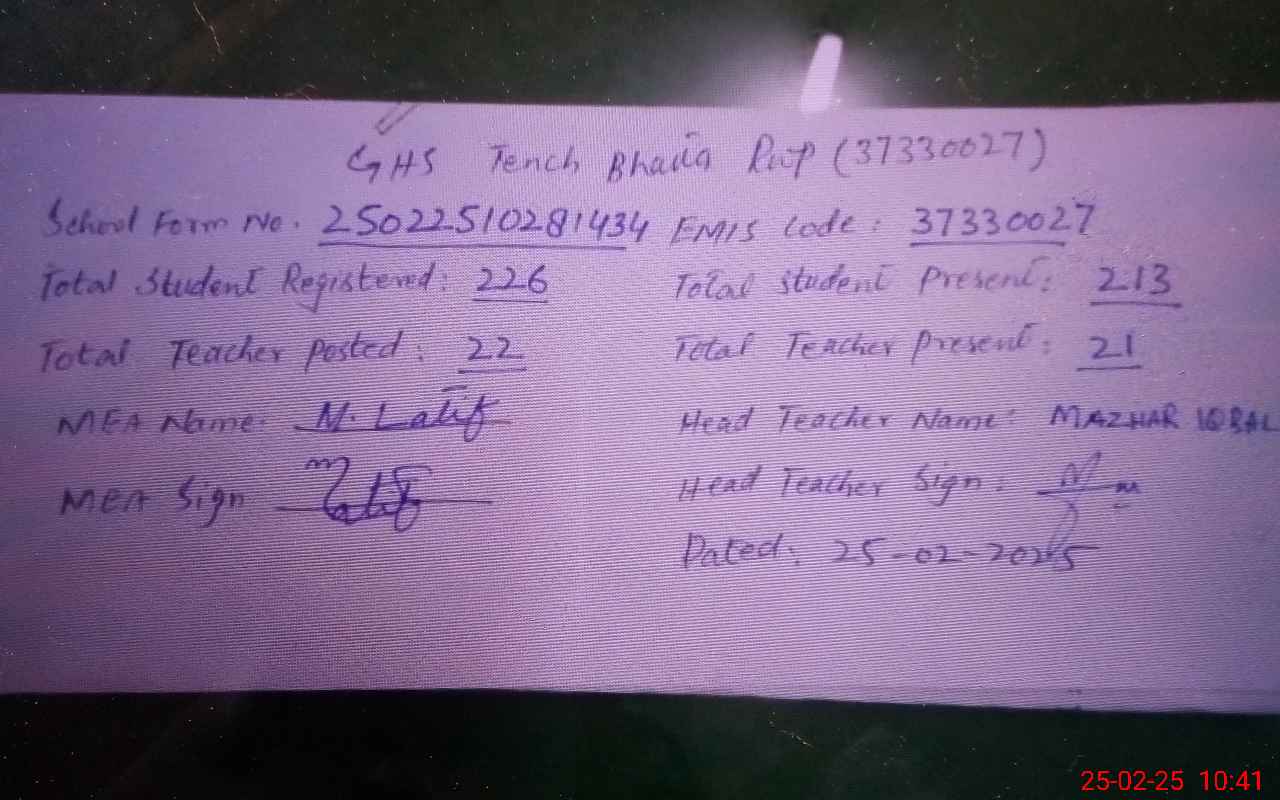 GHS Tench Bhatta Rwp (37330027)
School Form No. 25022510281434 EMIS Code: 37330027
Total Student Registered: 226 Total Student Present: 213
Total Teacher Posted: 22 Total Teacher Present: 21
MEA Name: M. Latif Head Teacher Name: MAZHAR IQBAL
MEA Sign Head Teacher Sign:
Dated: 25-02-2025
25-02-25 10:41